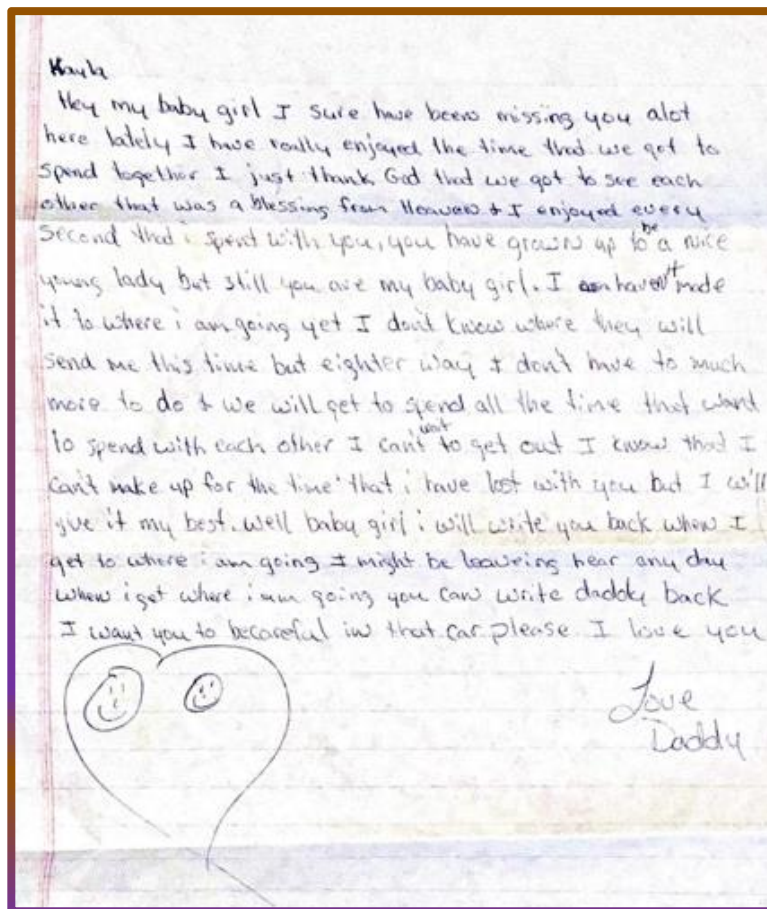 Kayla
Hey my baby girl I sure have been missing you alot
here lately I have really enjoyed the time that we got to
spend together I just thank God that we got to see each
other that was a blessing from Heaven & I enjoyed every
second that i spent with you, you have grown up to be a nice
young lady but still you are my baby girl. I haven't made
it to where i am going yet I don't know where they will
send me this time but eighter way I don't have to much
more to do & we will get to spend all the time that want
to spend with each other I can't wait to get out I know that I
can't make up for the time that i have lost with you but I will
give it my best. Well baby girl i will write you back when I
get to where i am going I might be leaveing hear any day
when i get where i am going you can write daddy back
I want you to becareful in that car please I love you
Love
Daddy